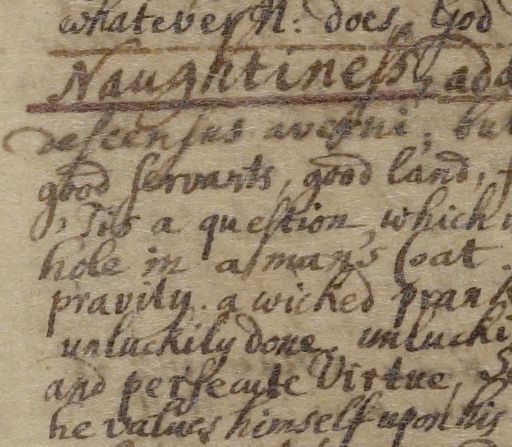 whatever N: does, God
Naughtineſs, add
deſcenſus averni, but
good ſervants, good land,
'Tis a queſtion which
hole in a man's Coat
pravity. a wicked prank
unluckily done, unlucki
and perſecute Virtue,
he values himself upon his